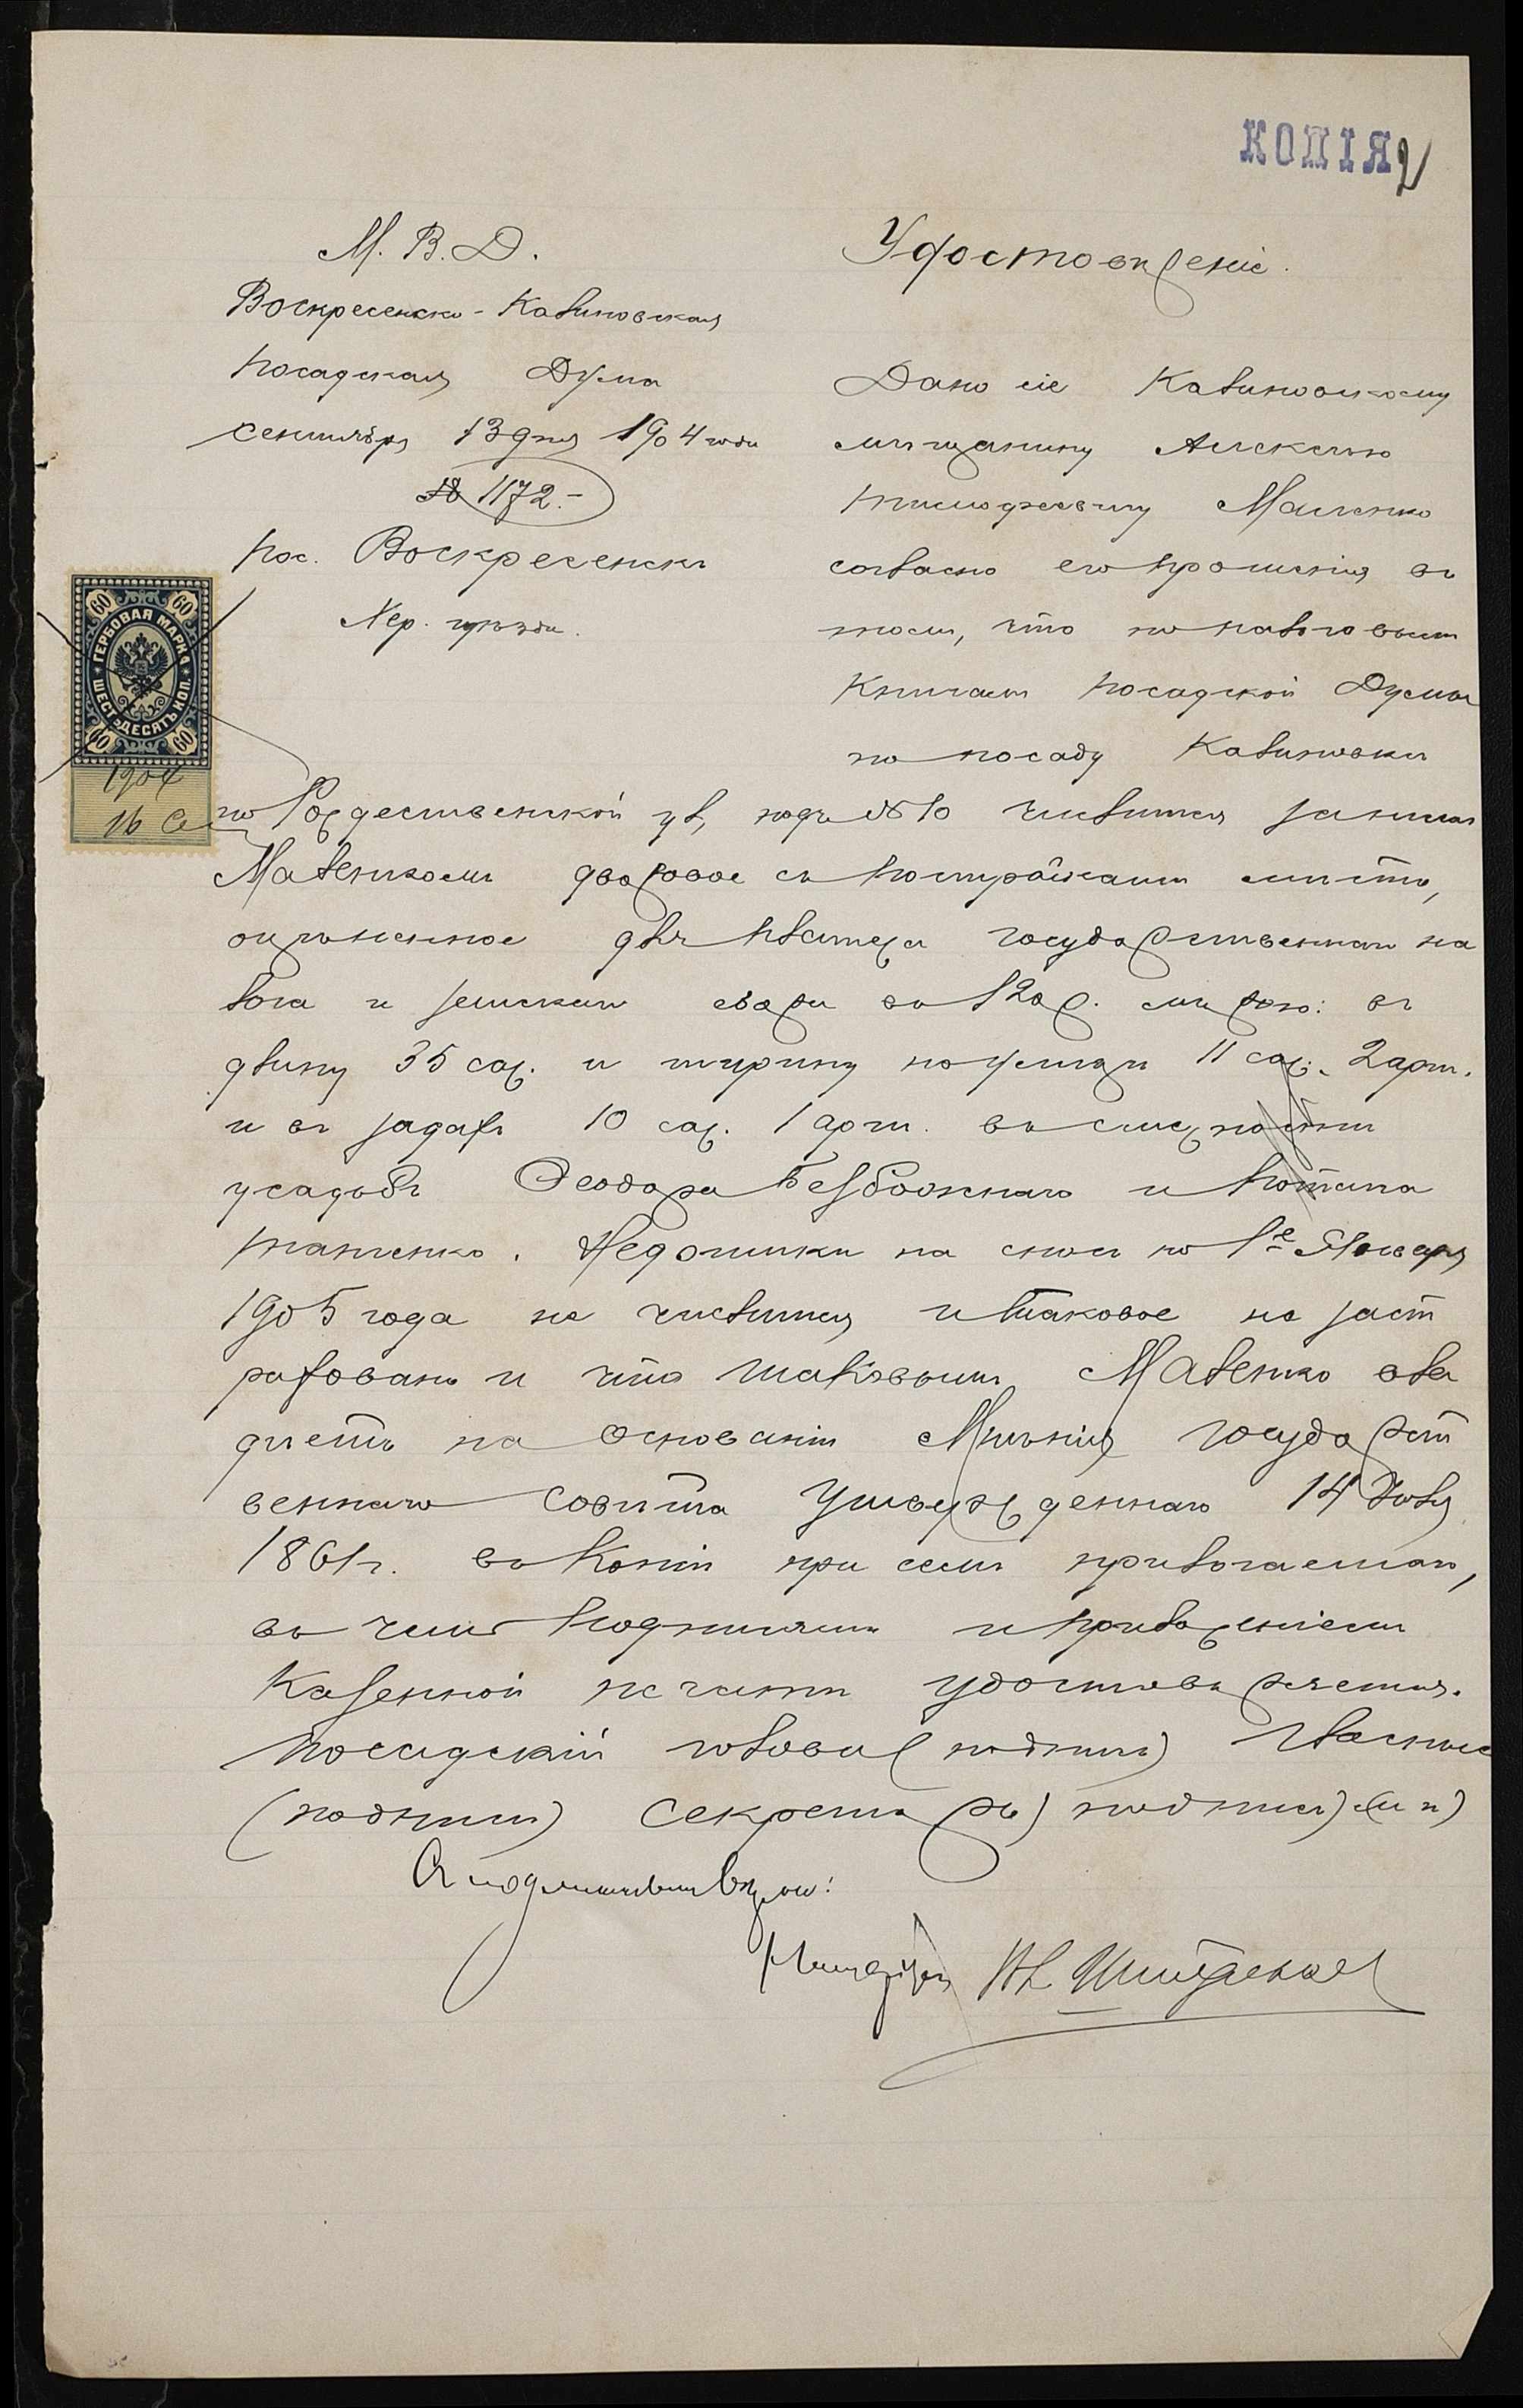 КОПІЯ 2
М. В. Д.
Воскресенско-Калиновская
Посадская Дума
Сентября 13 дня 1904 года
№ 1172.-
пос. Воскресенскъ
Хер. уѣзда.
ГЕРБОВАЯ МАРКА
ШЕСТЬДЕСЯТЪ КОП.
60 60 60 60
1904
16 Се
Удостовѣреніе.
Дано сіе Калиновскому
мѣщанину Алексѣю
Тимофеевичу Маленко
согласно его прошенія въ
томъ, что по налоговымъ
книгамъ Посадской Думы
по посаду Калиновки
по Рождественской ул, подъ № 10 числится за нимъ
Маленкомъ дворовое съ постройками мѣсто,
оцѣненное для платежа государственнаго на
лога и земскаго сбора въ 120 р. мѣрою: въ
длину 35 саж. и ширину по улицѣ 11 саж. 2 арш.
и въ задахъ 10 саж. 1 арш. въ смежности
усадьбъ Феодора Безбожнаго и
. Недоимки на немъ по 1е Января
1905 года не числится и таковое не заст
раховано и что таковымъ Маленко вла
дѣетъ на основаніи Мнѣнія Государст
веннаго Совѣта Утвержденнаго 14 Іюля
1861 г. въ копіи при семъ прилогаемаго,
въ чемъ подписями и приложеніемъ
казенной печати удостовѣряется.
Посадскій голова (подпись) Гласные
(подписи) Секретарь) подпись) (м п)
Съ подлиннымъ вѣрно: